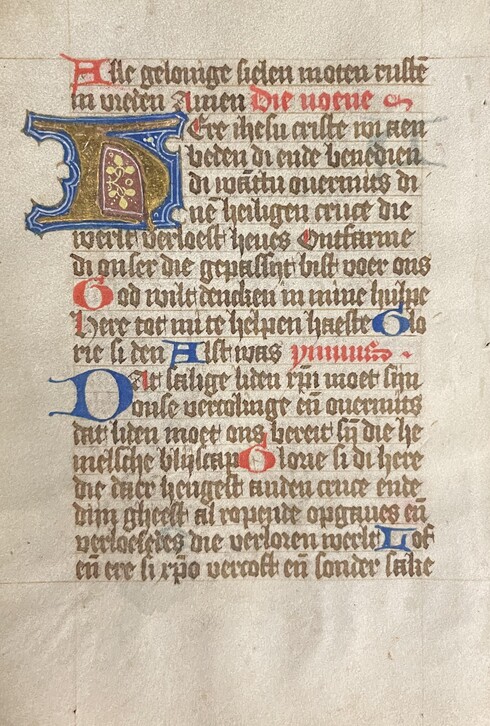 Alle gelouige sielen moten rustē
in vreden Amen Die noene
Here ihesu criste wi aen
beden di ende benedien
di wāttu ouermits di
nē heiligen cruce die
werlt verloest heues Ontfarme
di onser die gepassijt bist voer ons
God wilt dencken in mine hulpe
Here tot mi te helpen haeste Glo
rie si den Alst was ymnus
Dat salige liden xp̄i moet sijn
onse vercolinge eñ ouermits
dat liden moet ons bereit sijn die he
melsche bliscap Glorie si di here
die daer hengest anden cruce ende
dijn gheest al ropende opgaues eñ
verloestes die verloren werlt Lof
eñ ere si xp̄o vercoft eñ sonder sake